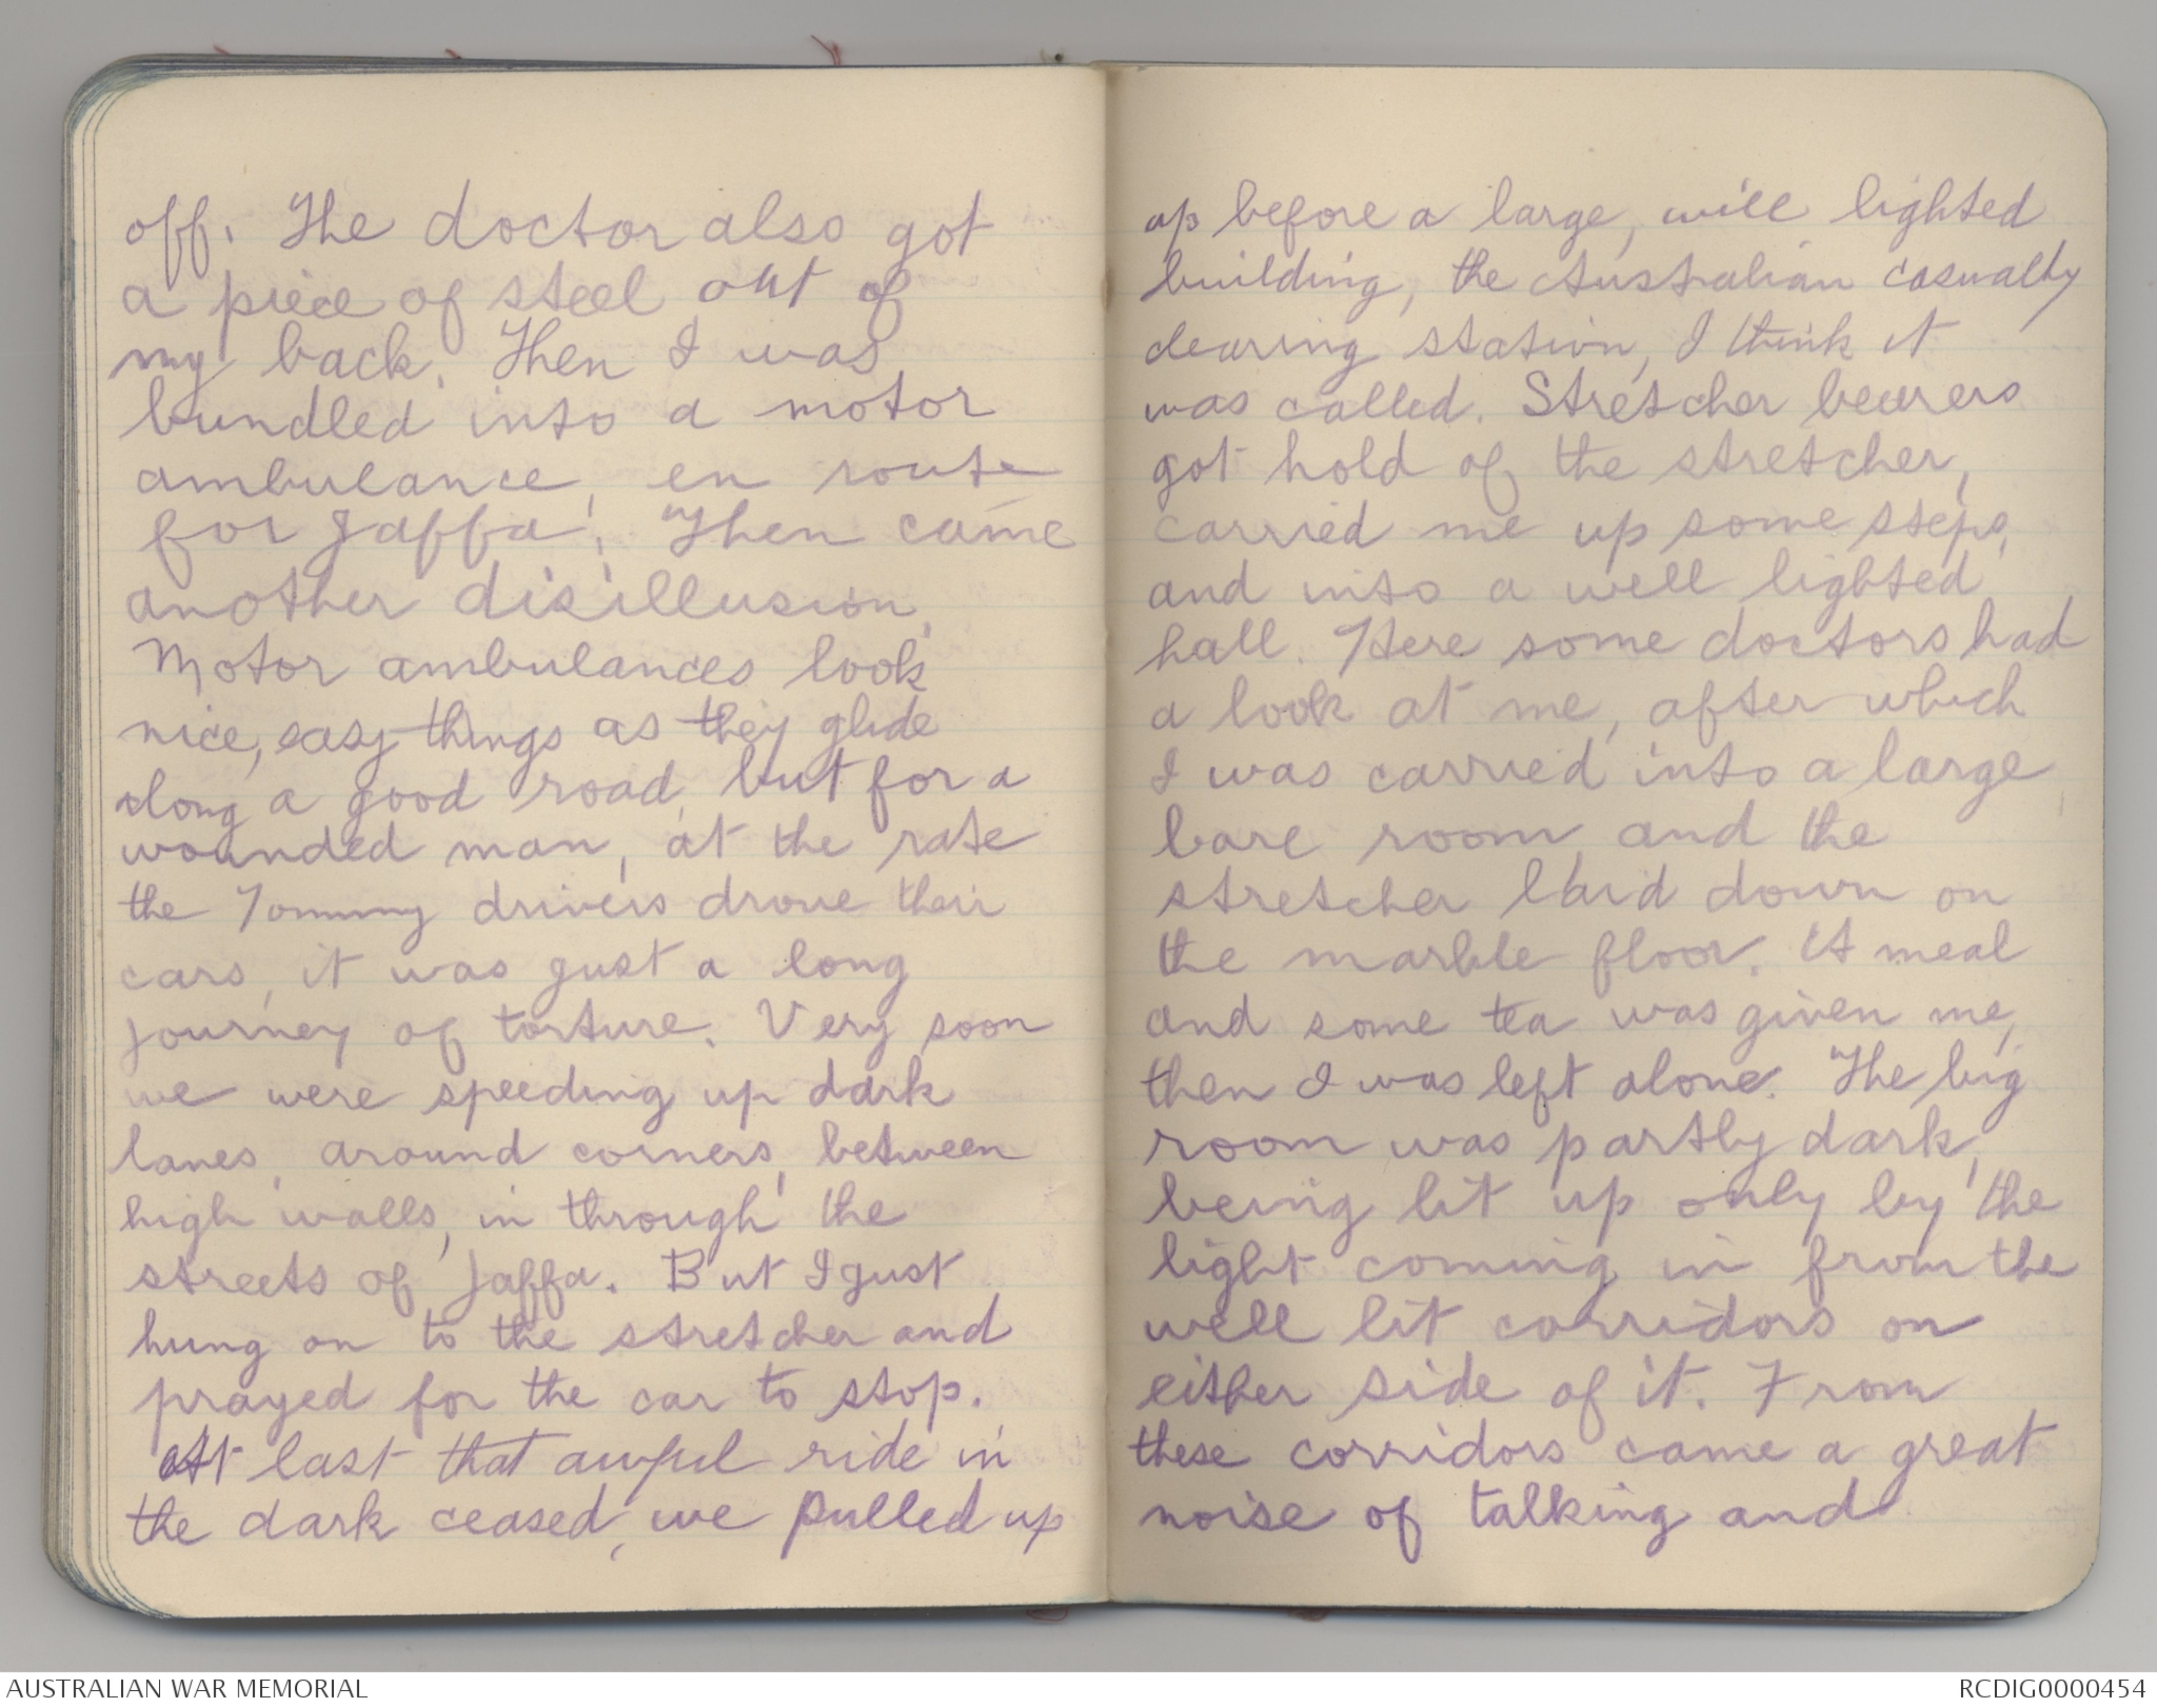 off. The doctor also got
a piece of steel out of
my back. Then I was
bundled into a motor
ambulance, en route
for Jaffa. Then came
another disillusion,
Motor ambulances look
nice, easy things as they glide
along a good road, but for a
wounded man, at the rate
the Tommy drivers drove their
cars, it was just a long
journey of torture. Very soon
we were speeding up dark
lanes, around corners, between
high walls, in through the
streets of Jaffa. But I just
hung on to the stretcher and
prayed for the car to stop.
At last that awful ride in
the dark ceased, we pulled up
up before a large, will lighted
building, the Australian casualty
clearing station, I think it
was called. Stretcher bearers
got hold of the stretcher,
carried me up some steps,
and into a well lighted
hall. Here some doctors had
a look at me, after which
I was carried into a large
bare room, and the
stretcher laid down on
the marble floor. A meal
and some tea was given me,
then I was left alone. The big
room was partly dark,
being lit up only by the
light coming in from the
well lit corridors on
either side of it. From
these corridors came a great
noise of talking and
AUSTRALIAN WAR MEMORIAL
RCDIG0000454